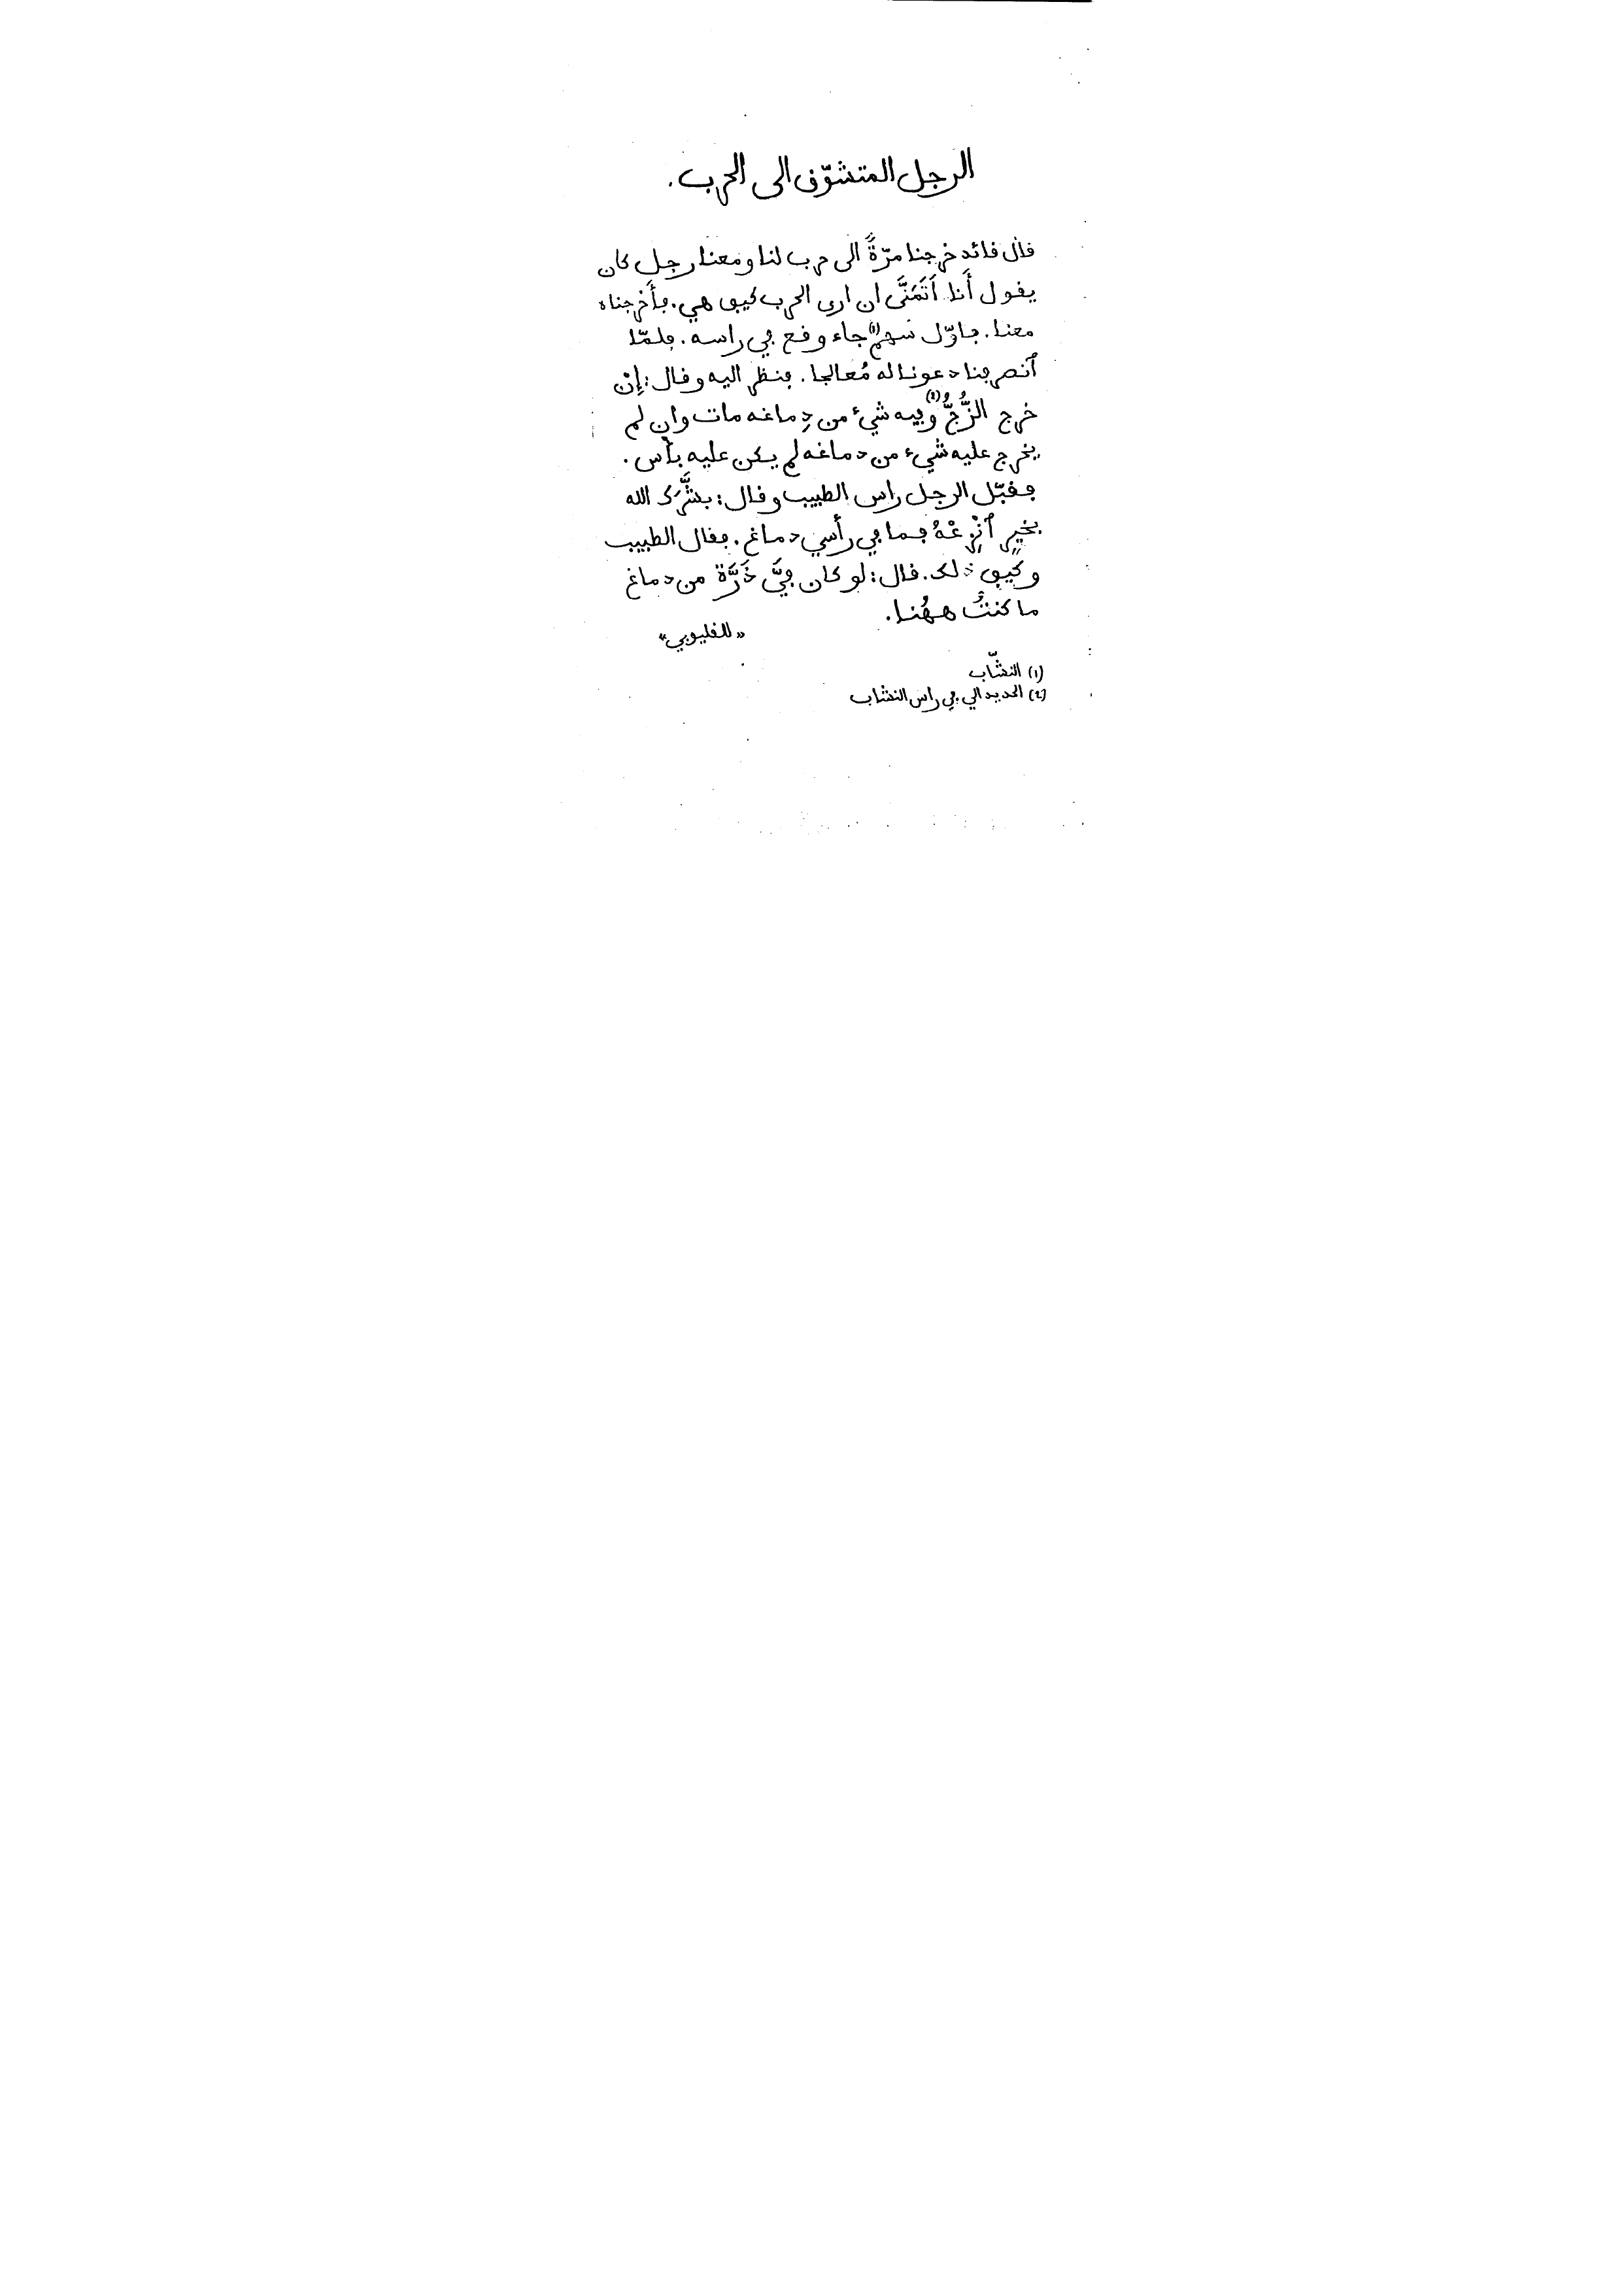 الرجل المتشوّق الى الحرب.
قال قائد خرجنا مرّةً الى حرب لنا ومعنا رجل كان
يقول أَنا أَتَمَنَّى ان ارى الحرب كيف هي. فأَخرجناه
معنا. فاوّل سهم (١) جاء وقع في راسه. فلمّا
ٱنصرفنا دعونا له مُعالجا. فنظر اليه وقال: إِنْ
خرج الزُّجُّ (٢) وفيه شيء من دِماغه مات وان لم
يخرج عليه شيء من دماغه لم يكن عليه بأس.
فقبّل الرجل راس الطبيب وقال: بشَّرَك الله
بخيرٍ ٱنْزِعْهُ فما في رأسي دماغ. فقال الطبيب
وكيف ذلك. قال: لو كان فيَّ ذَرَّة من دماغ
ما كنتُ ههُنا.
«للقليوبي»
(١) النشّاب
(٢) الحديد الي في راس النشاب